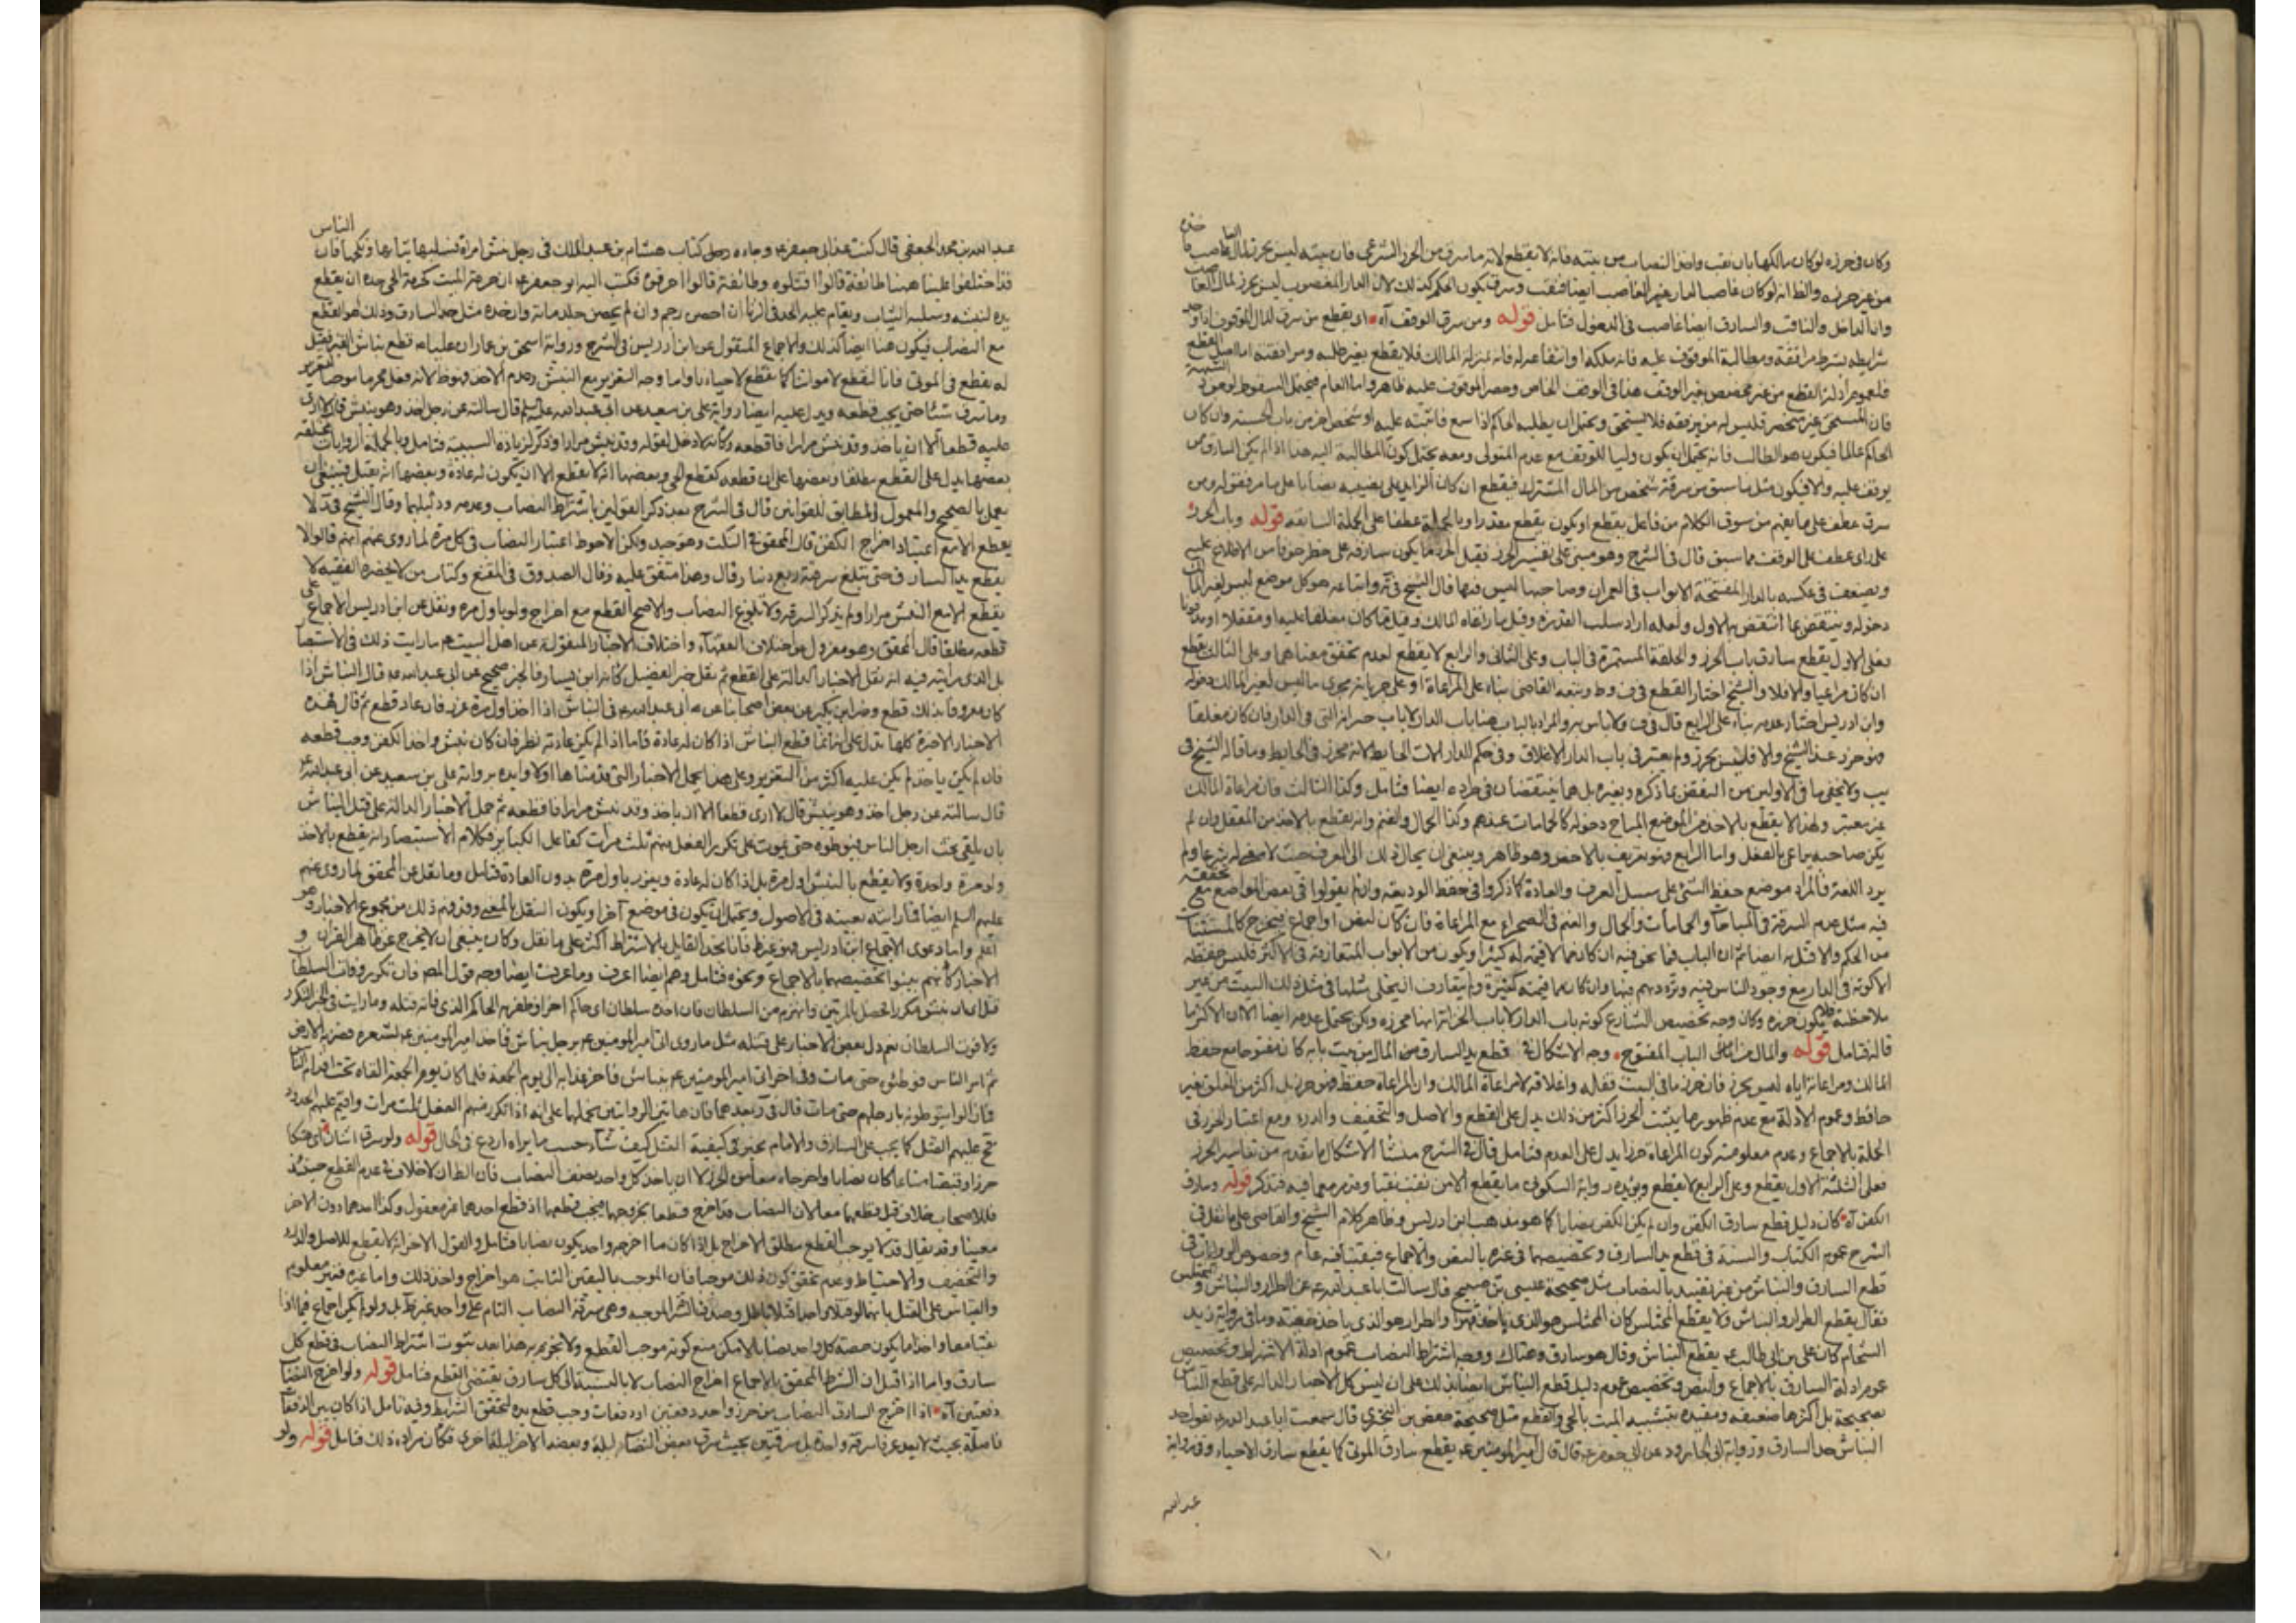 وكان في حرزه لوكان مالكها بان نقب واخذ النصاب من بيته فانه لا يقطع لانه ما سرق من الحرز الشرعي فان بيته ليس بحرز لمال الغاصب
من غير حرزه والظ انه لوكان غاصب الدار غير الغاصب ايضا فنقب وسرق يكون الحكم كذلك لان الدار المغصوب ليس بحرز لمال
وانا الداخل والناقب والسارق ايضا غاصب في الدخول فتامل قوله ومن سرق الوقف آه اى يقطع من سرق المال الموقوف
شرايطه بشرط مرافقة ومطالبة الموقوف عليه فانه ملكه او انتفاعه له فانه بمنزلة المالك فلا يقطع بغير طلبه ومرافعته اما اصل القطع
فلعموم ادلة القطع من غير مخصص بغير الوقف هذا في الوقف الخاص وحصر الموقوف عليه ظاهر واما العام فيحتمل السقوط
فان المستحق غير منحصر فليس له من يرفعه فلا يستحق ويحتمل ان يطلبه الحاكم اذا سمع فاثبته عليه او شخص اخر من باب الحسبة وان كان
الحاكم عالما فيكون هو الطالب فانه يحتمل ان يكون وليا للوقف مع عدم المتولى ومعه يحتمل كون المطالبة اليه هذا اذا لم يكن السارق ممن
يوقف عليه والا فيكون مثل ما سبق من سرقة شخص من المال المشترك فيقطع ان كان الزايد على نصيبه نصابا على ما مر فقوله ومن
سرق عطف على ما يفهم من سوق الكلام من فاعل يقطع او يكون يقطع مقدرا وبالجملة عطفا على الجملة السابقه قوله وباب الحرز
على راى عطف على الوقف مما سبق قال في الشرح وهو مبنى على تفسير الحرز فقيل الحرز ما يكون سارقه على خطر خوفا من الاطلاع عليه
ويضعف في عكسه بالدار المفتحة الابواب في العمران وصاحبها ليس فيها قال الشيخ في ية واتباعه هو كل موضع ليس لغير
دخوله وينتقض بما انتقض به الاول ولعله اراد سلب القدرة وقيل ما راعاه المالك وقيل ما كان مغلقا عليه او مقفلا او مدفونا
فعلى الاول يقطع سارق باب الحرز والحلقة المستمرة في الباب وعلى الثاني والرابع لا يقطع لعدم تحقق معناهما وعلى الثالث يقطع
ان كان مراعيا والا فلا والشيخ اختار القطع في ف و ط وتبعه القاضي بناء على المراعاة او على جريانه مجرى ما ليس لغير المالك دخوله
وابن ادريس اختار عدمه بناء على الرابع قال في ف ولا باس به والمراد بالباب هنا باب الدار لا باب خزانة التى في الدار فان كان مغلقا
فهو حرز عند الشيخ والا فليس بحرز ولم يعتبر في باب الدار الاغلاق وفي حكم الدار الات الحايط لانه محرز في الحايط وما قاله الشيخ في
يب ولا يخفى ما في الاولين من النقض بما ذكره وبغيره بل هما ينتقضان في طرده ايضا فتامل وكذا الثالث فان مراعاة المالك
غير معتبر ولهذا لا يقطع بالاخذ من الموضع المباح دخوله كالحمامات عندهم وكذا الجمال والغنم وانه يقطع بالاخذ من المقفل وان لم
يكن صاحبه يراعى بالفعل واما الرابع فهو تعريف بالاخفى وهو ظاهر وينبغى ان يحال ذلك الى العرف حيث لا معنى له شرعا ولم
يرد اللغة فالمراد موضع حفظ الشئ على سبيل العرف والعادة كما ذكروا في حفظ الوديعة وان لم يقولوا في بعض المواضع مع
فيه مثل عدم السرقة في المباحات والحمامات والجمال والغنم في الصحراء مع المراعاة فان كان لنص او اجماع فيخرج كالمستثنيات
من الحكم والا فقل به ايضا ثم ان الباب فيما نحن فيه ان كان مما لا قيمة له كثيرا ويكون من الابواب المتعارفة في الاكثر فليس حفظه
الا كونه في الدار مع وجود الناس فيه وتردهم فيها وان كان مما قيمته كثيرة ولم يتعارف ان يخلى مثلها في مثل ذلك البيت من غير
ملاحظة فلا يكون حرزه وكان وجه تخصيص الشارع كونه باب الدار لا باب الخزانة انها محرزه ولكن يحتمل عدمه ايضا الا ان الاكثر ما
قاله فتامل قوله والمال من الباب المفتوح وجه الاشكال في قطع يد السارق من المال من بيت بابه كان مفتوحا مع حفظ
المالك ومراعاته اياه ليس بحرز فان حرز ما في البيت قفله واغلاقه لا مراعاة المالك وان المراعاة حفظ فهو حرز بل اكثر من الغلق بغير
حافظ وعموم الادلة مع عدم ظهور ما يثبت الحرز اكثر من ذلك يدل على القطع والاصل والتخفيف والدرء ومع اعتبار الحرز في
الجملة بالاجماع وعدم معلومية كون المراعاة حرزا يدل على العدم فتامل قال في الشرح منشا الاشكال ما تقدم من تفاسير الحرز
فعلى الثلثة الاول يقطع وعلى الرابع لا يقطع ويؤيده رواية السكوني ما يقطع الا من نقب نقبا وقد مر معما فيه فتذكر قوله وسارق
الكفن آه كان دليل قطع سارق الكفن وان لم يكن الكفن نصابا كما هو مذهب ابن ادريس وظاهر كلام الشيخ والقاضي على ما نقل في
الشرح عموم الكتاب والسنة في قطع يد السارق وتخصيصها في غيره بالنص والاجماع فيبقى فيه عام وخصوص الروايات في
قطع السارق والنباش من غير تقييد بالنصاب مثل صحيحة عيسى بن صبيح قال سالت ابا عبد الله ع عن الطرار والنباش والمختلس
فقال يقطع الطرار والنباش ولا يقطع المختلس كان المختلس هو الذى ياخذ جهرا والطرار هو الذى ياخذ خفية وما في رواية زيد
الشحام كان على بن ابى طالب ع يقطع النباش وقال هو سارق وهتاك ووجه اشتراط النصاب عموم ادلة الاشتراط وتخصيص
عموم ادلة السارق بالاجماع والنص وتخصيص عموم دليل قطع النباش ايضا بذلك على ان ليس كل الاخبار الدالة على قطع النباش
بصحيحة بل اكثرها ضعيفه ومقيده بتشبيه الميت بالحى والقطع مثل صحيحة حفص بن البخترى قال سمعت ابا عبد الله ع يقول حد
النباش حد السارق ورواية ابى الجارود عن ابى جعفر ع قال قال امير المؤمنين ع يقطع سارق الموتى كما يقطع سارق الاحياء وفي رواية
عبد الله
عبد الله بن محمد الجعفي قال كنت عند ابى جعفر ع وجاءه رجل كتاب هشام بن عبد الملك في رجل نبش امراة فسلبها ثيابها ونكحها فان الناس
قد اختلفوا علينا ههنا طائفة قالوا اقتلوه وطائفة قالوا احرقوه فكتب اليه ابو جعفر ع ان حرمة الميت كحرمة الحى حده ان يقطع
يده لنبشه وسلبه الثياب ويقام عليه الحد في الزنا ان احصن رجم وان لم يحصن جلد مائة وان حده مثل حد السارق وذلك هو القطع
مع النصاب فيكون هنا ايضا كذلك والاجماع المنقول عن ابن ادريس في الشرح ورواية اسحق بن عمار ان عليا ع قطع نباش القبر فقيل
له يقطع في الموتى فانا لنقطع لامواتنا كما نقطع لاحيائنا واما وجه التعزير مع النبش وعدم الاخذ فهو ظ لانه فعل محرما موجبا للتعزير
وما سرق شيئا حتى يجب قطعه ويدل عليه ايضا رواية على بن سعيد عن ابى عبد الله علي السلم قال سالته عن رجل اخذ وهو ينبش قال لا ارى
عليه قطعا الا ان ياخذ وقد نبش مرارا فاقطعه وكانه لا دخل لقوله وقد نبش مرارا وذكر لزيادة السببية فتامل وبالجملة الروايات مختلفه
بعضها يدل على القطع مطلقا وبعضها على ان قطعه كقطع الحى وبعضها انه لا يقطع الا ان يكون له عادة وبعضها انه يقتل فينبغى ان
يعمل بالصحيح والمعمول والمطابق للقوانين قال في الشرح بعد ذكر القولين باشتراط النصاب وعدمه ودليلهما وقال الشيخ في لا
يقطع الا مع اعتياد اخراج الكفن قال المحقق في النكت وهو جيد ولكن الاحوط اعتبار النصاب في كل مرة لما روى عنهم انهم قالوا لا
يقطع يد السارق حتى تبلغ سرقته ربع دينار وقال وهذا متفق عليه وقال الصدوق في المقنع وكتاب من لا يحضره الفقيه لا
يقطع الا مع النبش مرارا ولم يذكر السرقة ولا بلوغ النصاب والاصح القطع مع اخراج ولو باول مرة ونقل عن ابن ادريس الاجماع على
قطعه مطلقا قال المحقق وهو معزول من اختلاف الفقهاء واختلاف الاخبار المنقولة عن اهل البيت ع ما رايت ذلك في الاستبصا
بل الذى رايته فيه انه نقل الاخبار الدالة على القطع ثم نقل خبر الفضيل كانه ابن يسار فالخبر صحيح عن ابى عبد الله ع قال النباش اذا
كان معروفا بذلك قطع وخبر ابن بكير عن بعض اصحابنا عن ابى عبد الله ع في النباش اذا اخذ اول مرة عزر فان عاد قطع ثم قال فهذه
الاخبار الاخيرة كلها تدل على انه انما قطع النباش اذا كان له عادة فاما اذا لم يكن عادته نظر فان كان نبش واخذ الكفن وجب قطعه
فان لم يكن ياخذ لم يكن عليه اكثر من التعزير وعلى هذا يحمل الاخبار التى قدمناها اولا وايده برواية على بن سعيد عن ابى عبد الله ع
قال سالته عن رجل اخذ وهو ينبش قال لا ارى قطعا الا ان ياخذ وقد نبش مرارا فاقطعه ثم حمل الاخبار الدالة على قتل النباش
بان يلقى تحت ارجل الناس فيوطوه حتى يموت على تكرير الفعل منهم ثلث مرات كفاعل الكباير فكلام الاستبصار انه يقطع بالاخذ
ولو مرة واحدة ولا يقطع بالنبش اول مرة بل اذا كان له عادة ويعزر باول مرة بدون العادة فتامل وما نقل عن المحقق لما روى عنهم
عليهم السلم ايضا فما رايته بعينه في الاصول ويحتمل ان يكون في موضع آخر او يكون النقل بالمعنى وقد فهم ذلك من مجموع الاخبار وهو
اعلم واما دعوى الاجماع ابن ادريس فهو غير ظ فانا نجد القايل بالاشتراط اكثر على ما نقل وكان ينبغى ان لا يخرج عن ظاهر القران و
الاخبار كانهم بينوا تخصيصهما بالاجماع ونحوه فتامل وهم ايضا اعرف وما عرفت ايضا وجه قول المصنف فان تكرر وفات السلطان
قتل اى ان نبش مكررا لحصل بالمرتين وانهزم من السلطان فان اخذ سلطان اى حاكم اخر او ظفر به الحاكم الذى فاته قتله وما رايت في الخبر التكرر
ولا فوت السلطان نعم دل بعض الاخبار على قتله مثل ما روى اتى امير المومنين ع برجل نباش فاخذ امير المومنين ع بشعره فضرب به الارض
ثم امر الناس فوطئوه حتى مات وفي اخر اتى امير المومنين ع نباش فاخر عذابه الى يوم الجمعة فلما كان يوم الجمعة القاه تحت اقدام الناس
فما زالوا يتوطونه بارجلهم حتى مات قال في ر بعدهما فان هاتين الروايتين يحملها على انه اذا تكرر منهم الفعل ثلث مرات واقيم عليهم الحدود
فح عليهم القتل كما يجب على السارق والامام مخير في كيفية القتل كيف شاء حسب ما يراه اردع في الحال قوله ولو سرق اثنان آه اى هتكا
حرزا وقبضا متاعا كان نصابا واخرجاه معا من الحرز لا ان ياخذ كل واحد نصف النصاب فان الظ ان لا خلاف في عدم القطع حينئذ
فللاصحاب خلاف قيل قطعهما معا لان النصاب قد اخرج قطعا بخروجهما فيجب قطعهما اذ قطع احدهما غير معقول وكذا احدهما دون الاخر
معينا وقد يقال قد لا يوجب القطع مطلق الاخراج بل اذا كان ما اخرجه واحد يكون نصابا فتامل والقول الاخر انه لا يقطع للاصل والدرء
والتخفيف والاحتياط وعدم تحقق كون ذلك موجبا فان الموجب باليقين الثابت هو اخراج واحد ذلك واما غيره فغير معلوم
والقياس على القتل بانهما لو قتلا واحدا قتلا باطل وصدق السرقة الموجبة وهى سرقة النصاب التام على واحد غير ظ بل ولو لم يكن اجماع فيما اذا
نقبا معا واخذا ما يكون حصة كل واحد نصابا لامكن منع كونه موجب القطع ولا نجزم به هذا بعد ثبوت اشتراط النصاب في قطع كل
سارق واما اذا قيل ان الشرط المحقق بالاجماع اخراج النصاب لا بالنسبة الى كل سارق يقتضى القطع فتامل قوله ولو اخرج النصاب
دفعتين آه اذا اخرج السارق النصاب من حرز واحد دفعتين او دفعات وجب قطع يده لتحقق الشرايط وفيه تامل اذا كان بين الدفعات
فاصلة بحيث لا يعد عرفا سرقة واحدة بل سرقتين بحيث سرق بعض النصاب ليلة وبعضه الاخر ليلة اخرى فكان مراده ذلك فتامل قوله ولو